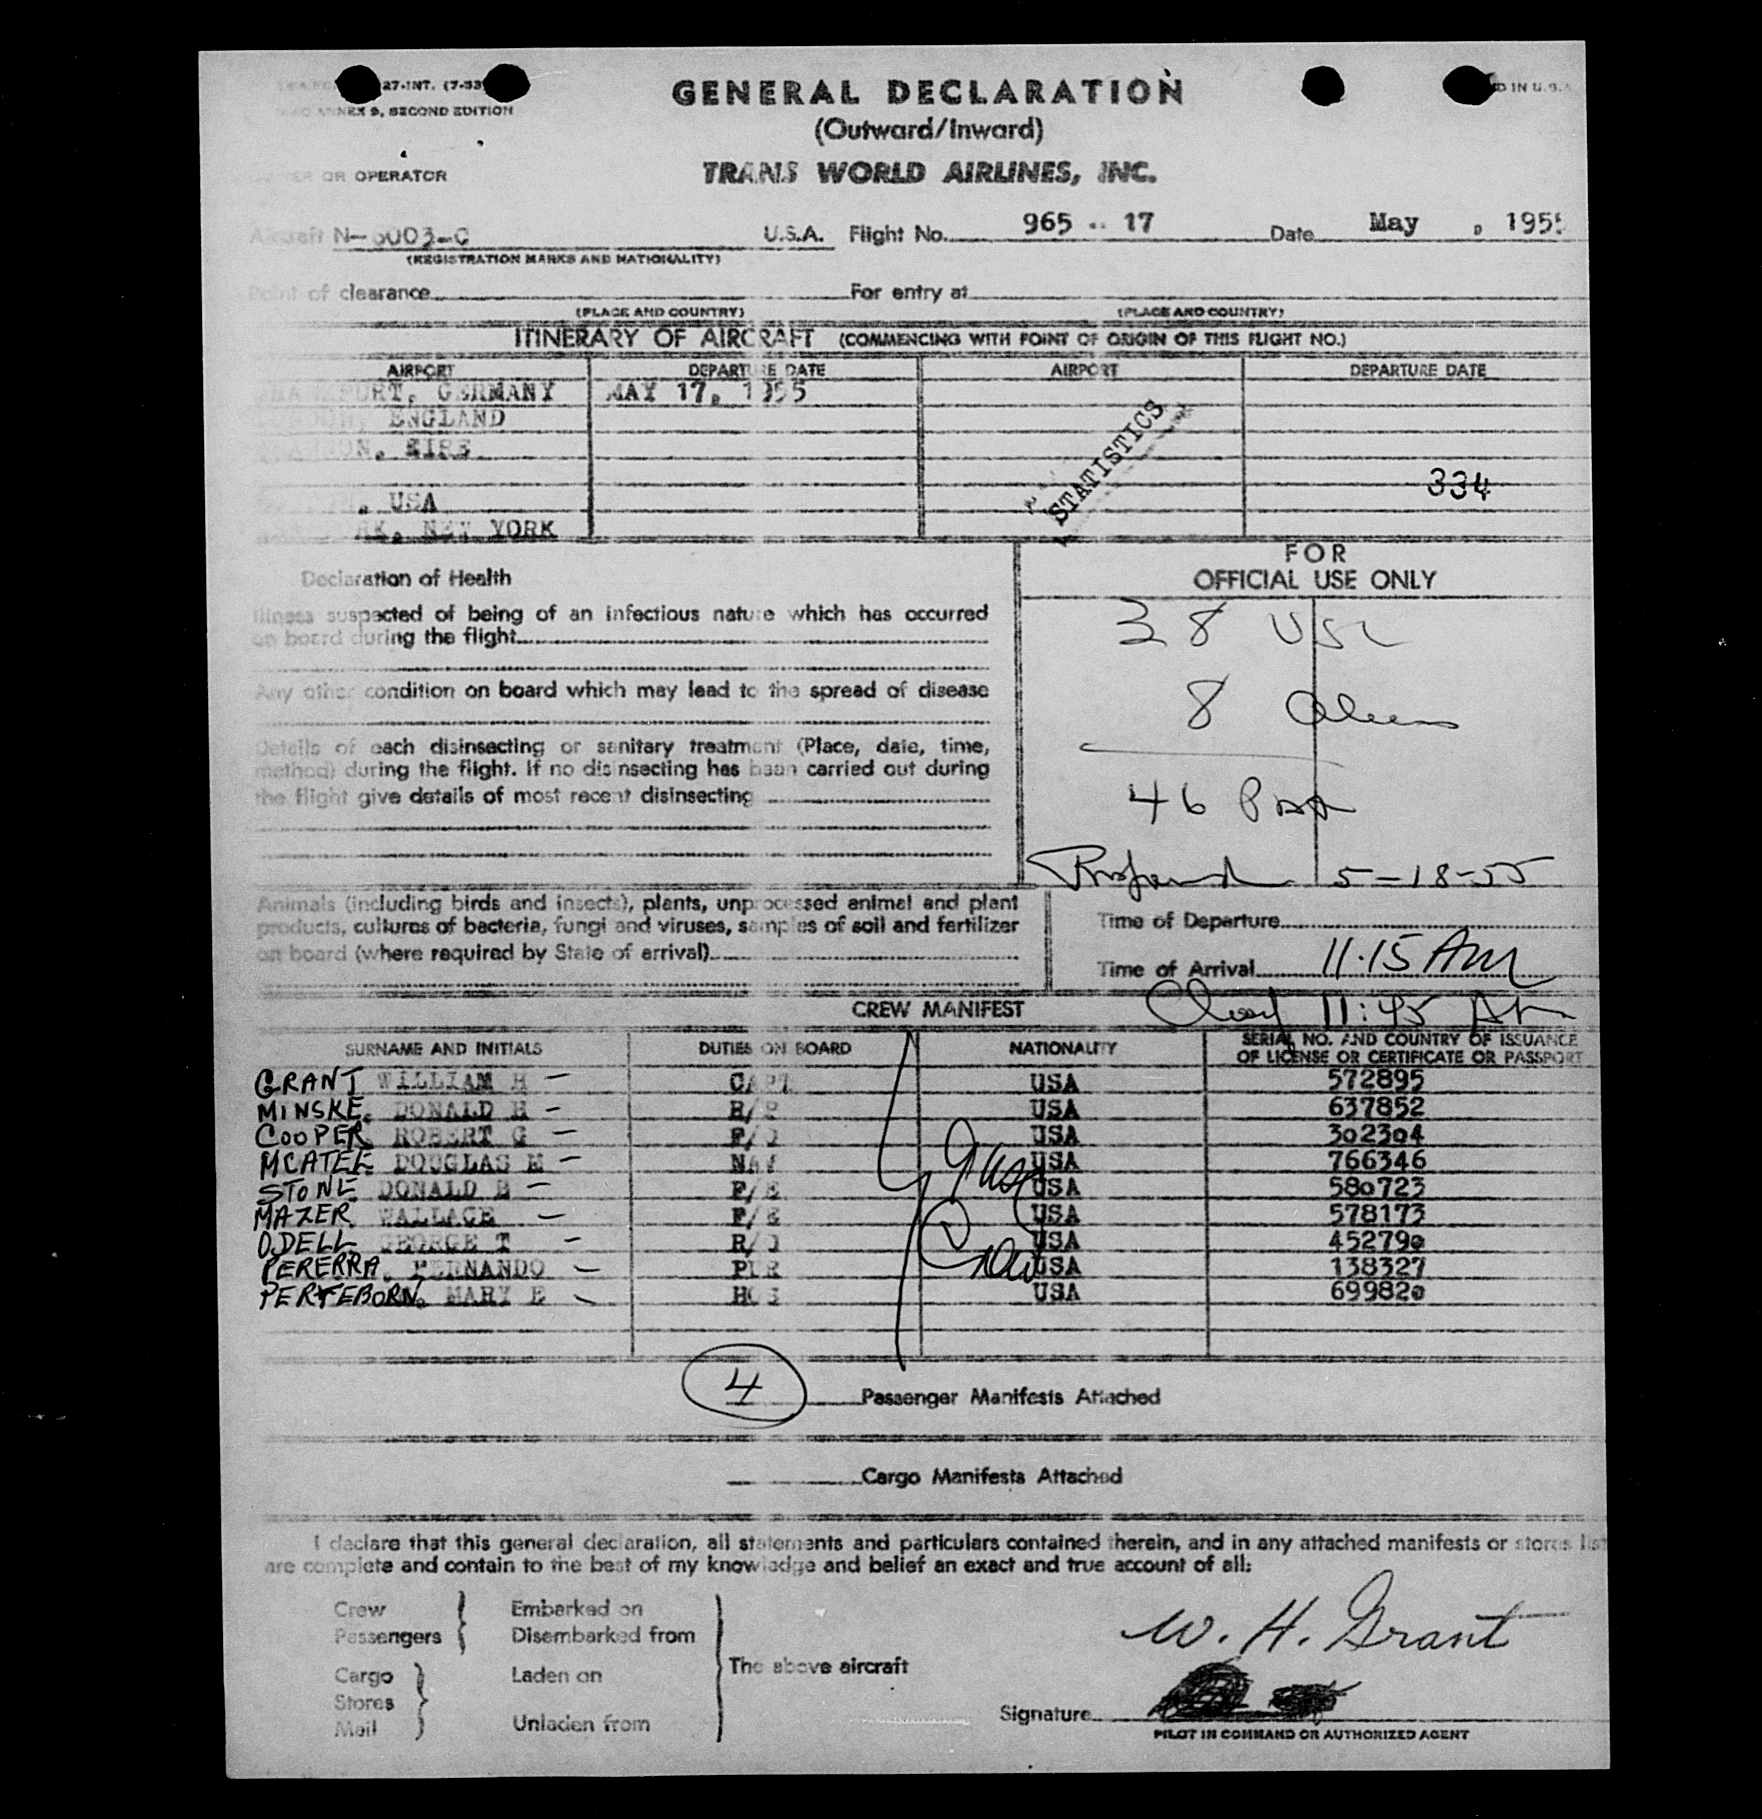 27-INT. (7-53
ANNEX 9, SECOND EDITION
GENERAL DECLARATION
D IN U.S.A
(Outward/Inward)
OR OPERATOR
TRANS WORLD AIRLINES, INC.
Aircraft N-6003-C U.S.A. Flight No. 965 - 17 Date May , 1955
(REGISTRATION MARKS AND NATIONALITY)
Point of clearance For entry at
(PLACE AND COUNTRY) (PLACE AND COUNTRY)
ITINERARY OF AIRCRAFT (COMMENCING WITH POINT OF ORIGIN OF THIS FLIGHT NO.)
AIRPORT DEPARTURE DATE AIRPORT DEPARTURE DATE
FRANKFURT, GERMANY MAY 17, 1955
LONDON, ENGLAND
SHANNON, EIRE
STATISTICS
334
, USA
NEW YORK
Declaration of Health
FOR
OFFICIAL USE ONLY
Illness suspected of being of an infectious nature which has occurred
on board during the flight
38 USC
Any other condition on board which may lead to the spread of disease
8 Aliens
Details of each disinsecting or sanitary treatment (Place, date, time,
method) during the flight. If no disinsecting has been carried out during
the flight give details of most recent disinsecting
46 Pax
5-18-55
Animals (including birds and insects), plants, unprocessed animal and plant
products, cultures of bacteria, fungi and viruses, samples of soil and fertilizer
on board (where required by State of arrival)
Time of Departure
Time of Arrival 11:15 AM
11:45 AM
CREW MANIFEST
SURNAME AND INITIALS DUTIES ON BOARD NATIONALITY SERIAL NO. AND COUNTRY OF ISSUANCE
OF LICENSE OR CERTIFICATE OR PASSPORT
GRANT WILLIAM H - CAPT USA 572895
MINSKE, DONALD H - USA 637852
COOPER, ROBERT G - F/O USA 302304
MCATEE DOUGLAS M - NAV USA 766346
STONE DONALD E - F/E USA 580723
MAZER WALLACE - F/E USA 578173
O,DELL GEORGE T - R/O USA 452790
PERERRA, FERNANDO - PUR USA 138327
PERFEBORN, MARY E - HOS USA 699820
Crew
4 Passenger Manifests Attached
Cargo Manifests Attached
I declare that this general declaration, all statements and particulars contained therein, and in any attached manifests or stores list
are complete and contain to the best of my knowledge and belief an exact and true account of all:
Crew
Passengers
Embarked on
Disembarked from
Cargo
Stores
Mail
Laden on
Unladen from
The above aircraft
W. H. Grant
Signature
PILOT IN COMMAND OR AUTHORIZED AGENT